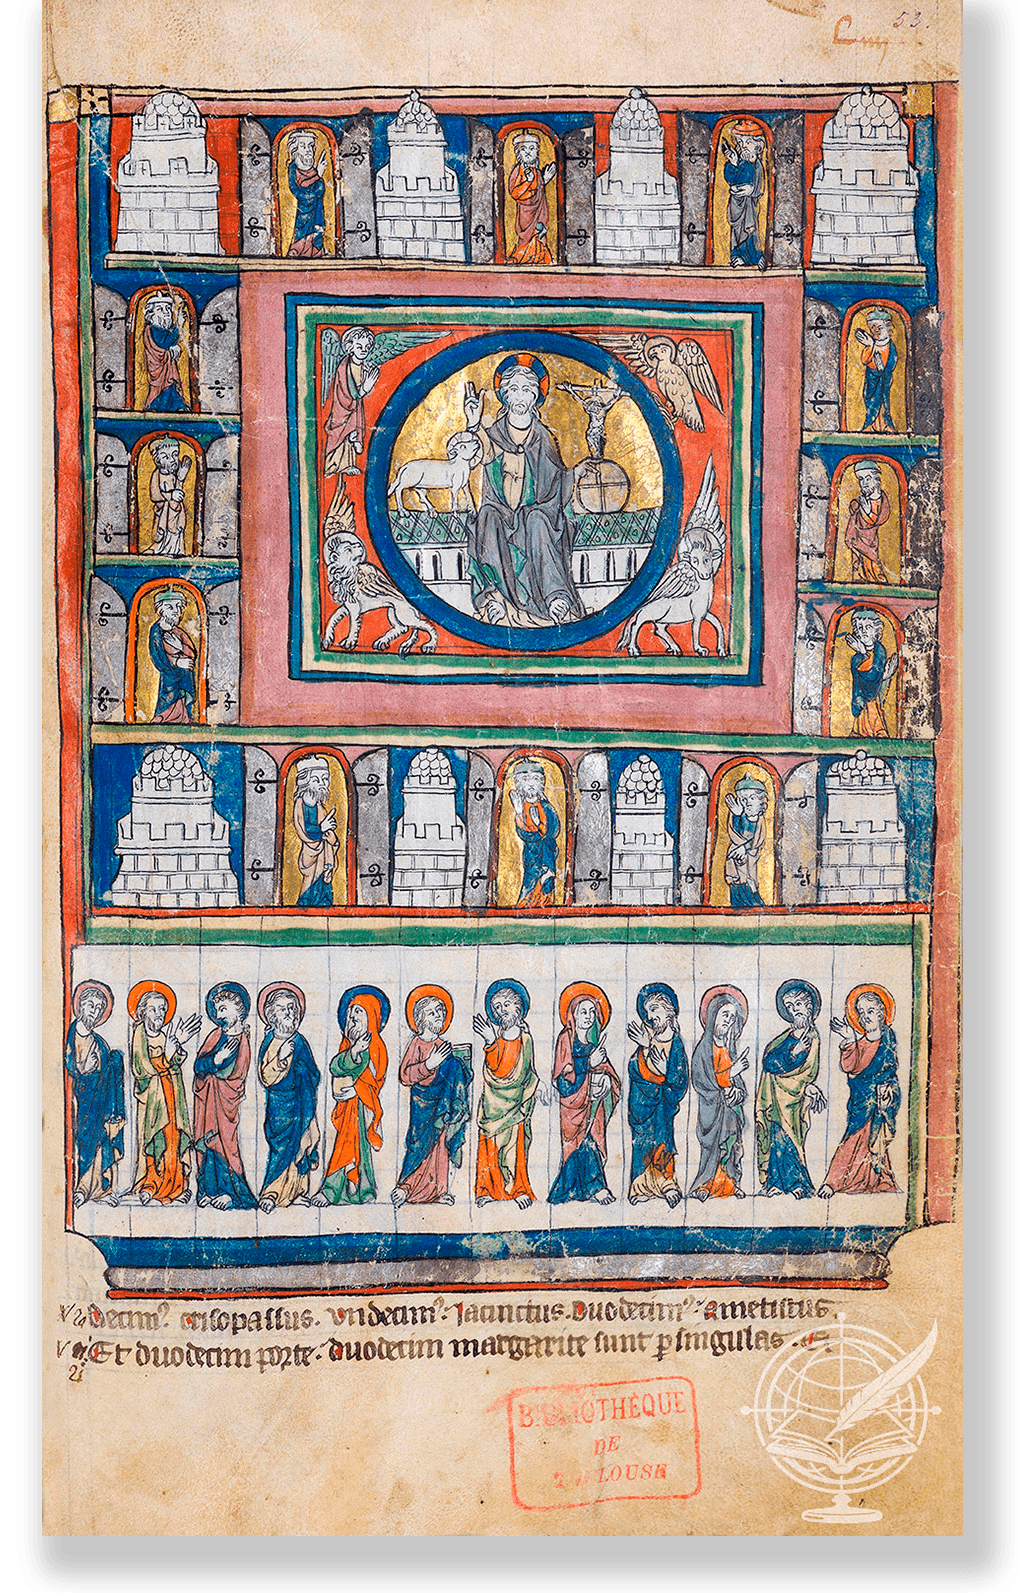 53.
V 20 decim⁹. crisopassus. vndecim⁹. Iacinctus. Duodecim⁹. ametistus.
V 21 Et duodecim porte. duodecim margarite sunt p singulas.
BIBLIOTHÈQUE
DE
TOULOUSE